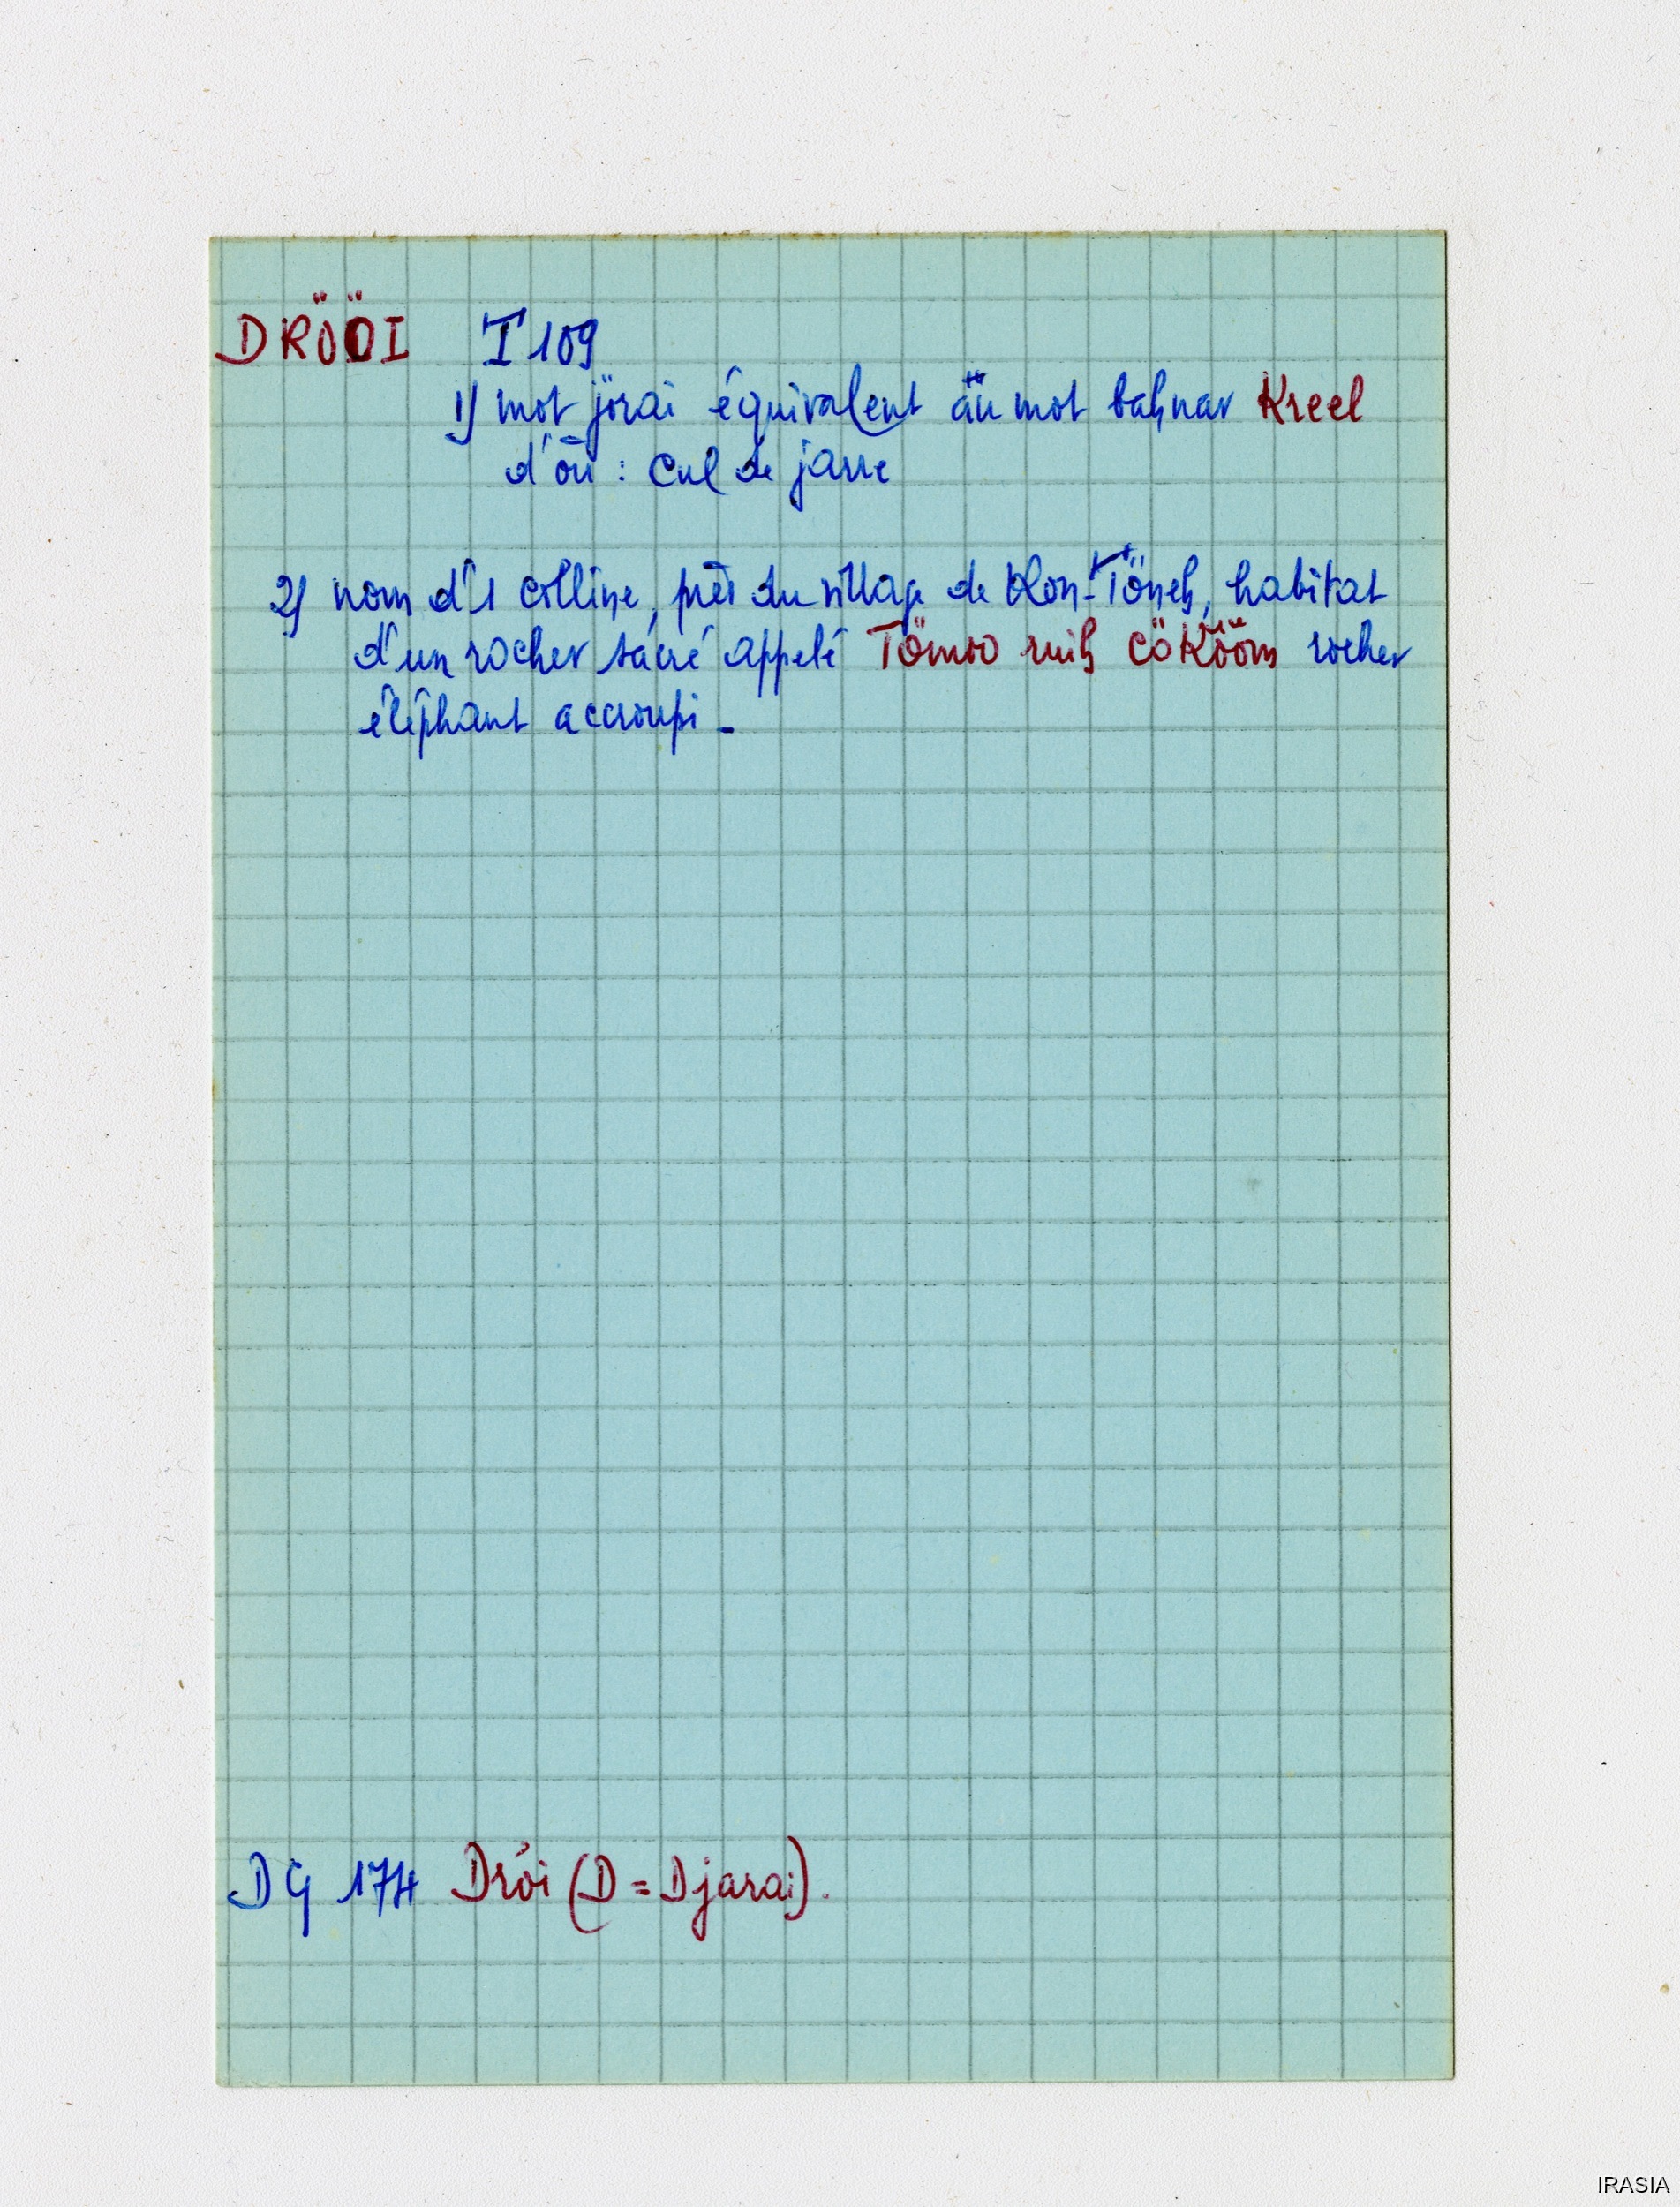 DRÖÖI I 109
1) mot jörai équivalent au mot bahnar Kreel
d'où : Cul de jarre
2) nom d'1 colline, près du village de Kon-Töneh, habitat
d'un rocher sacré appelé Tömoo ruih cöKööm rocher
éléphant accroupi -
DG 174 Dròi (D = Djarai).
IRASIA